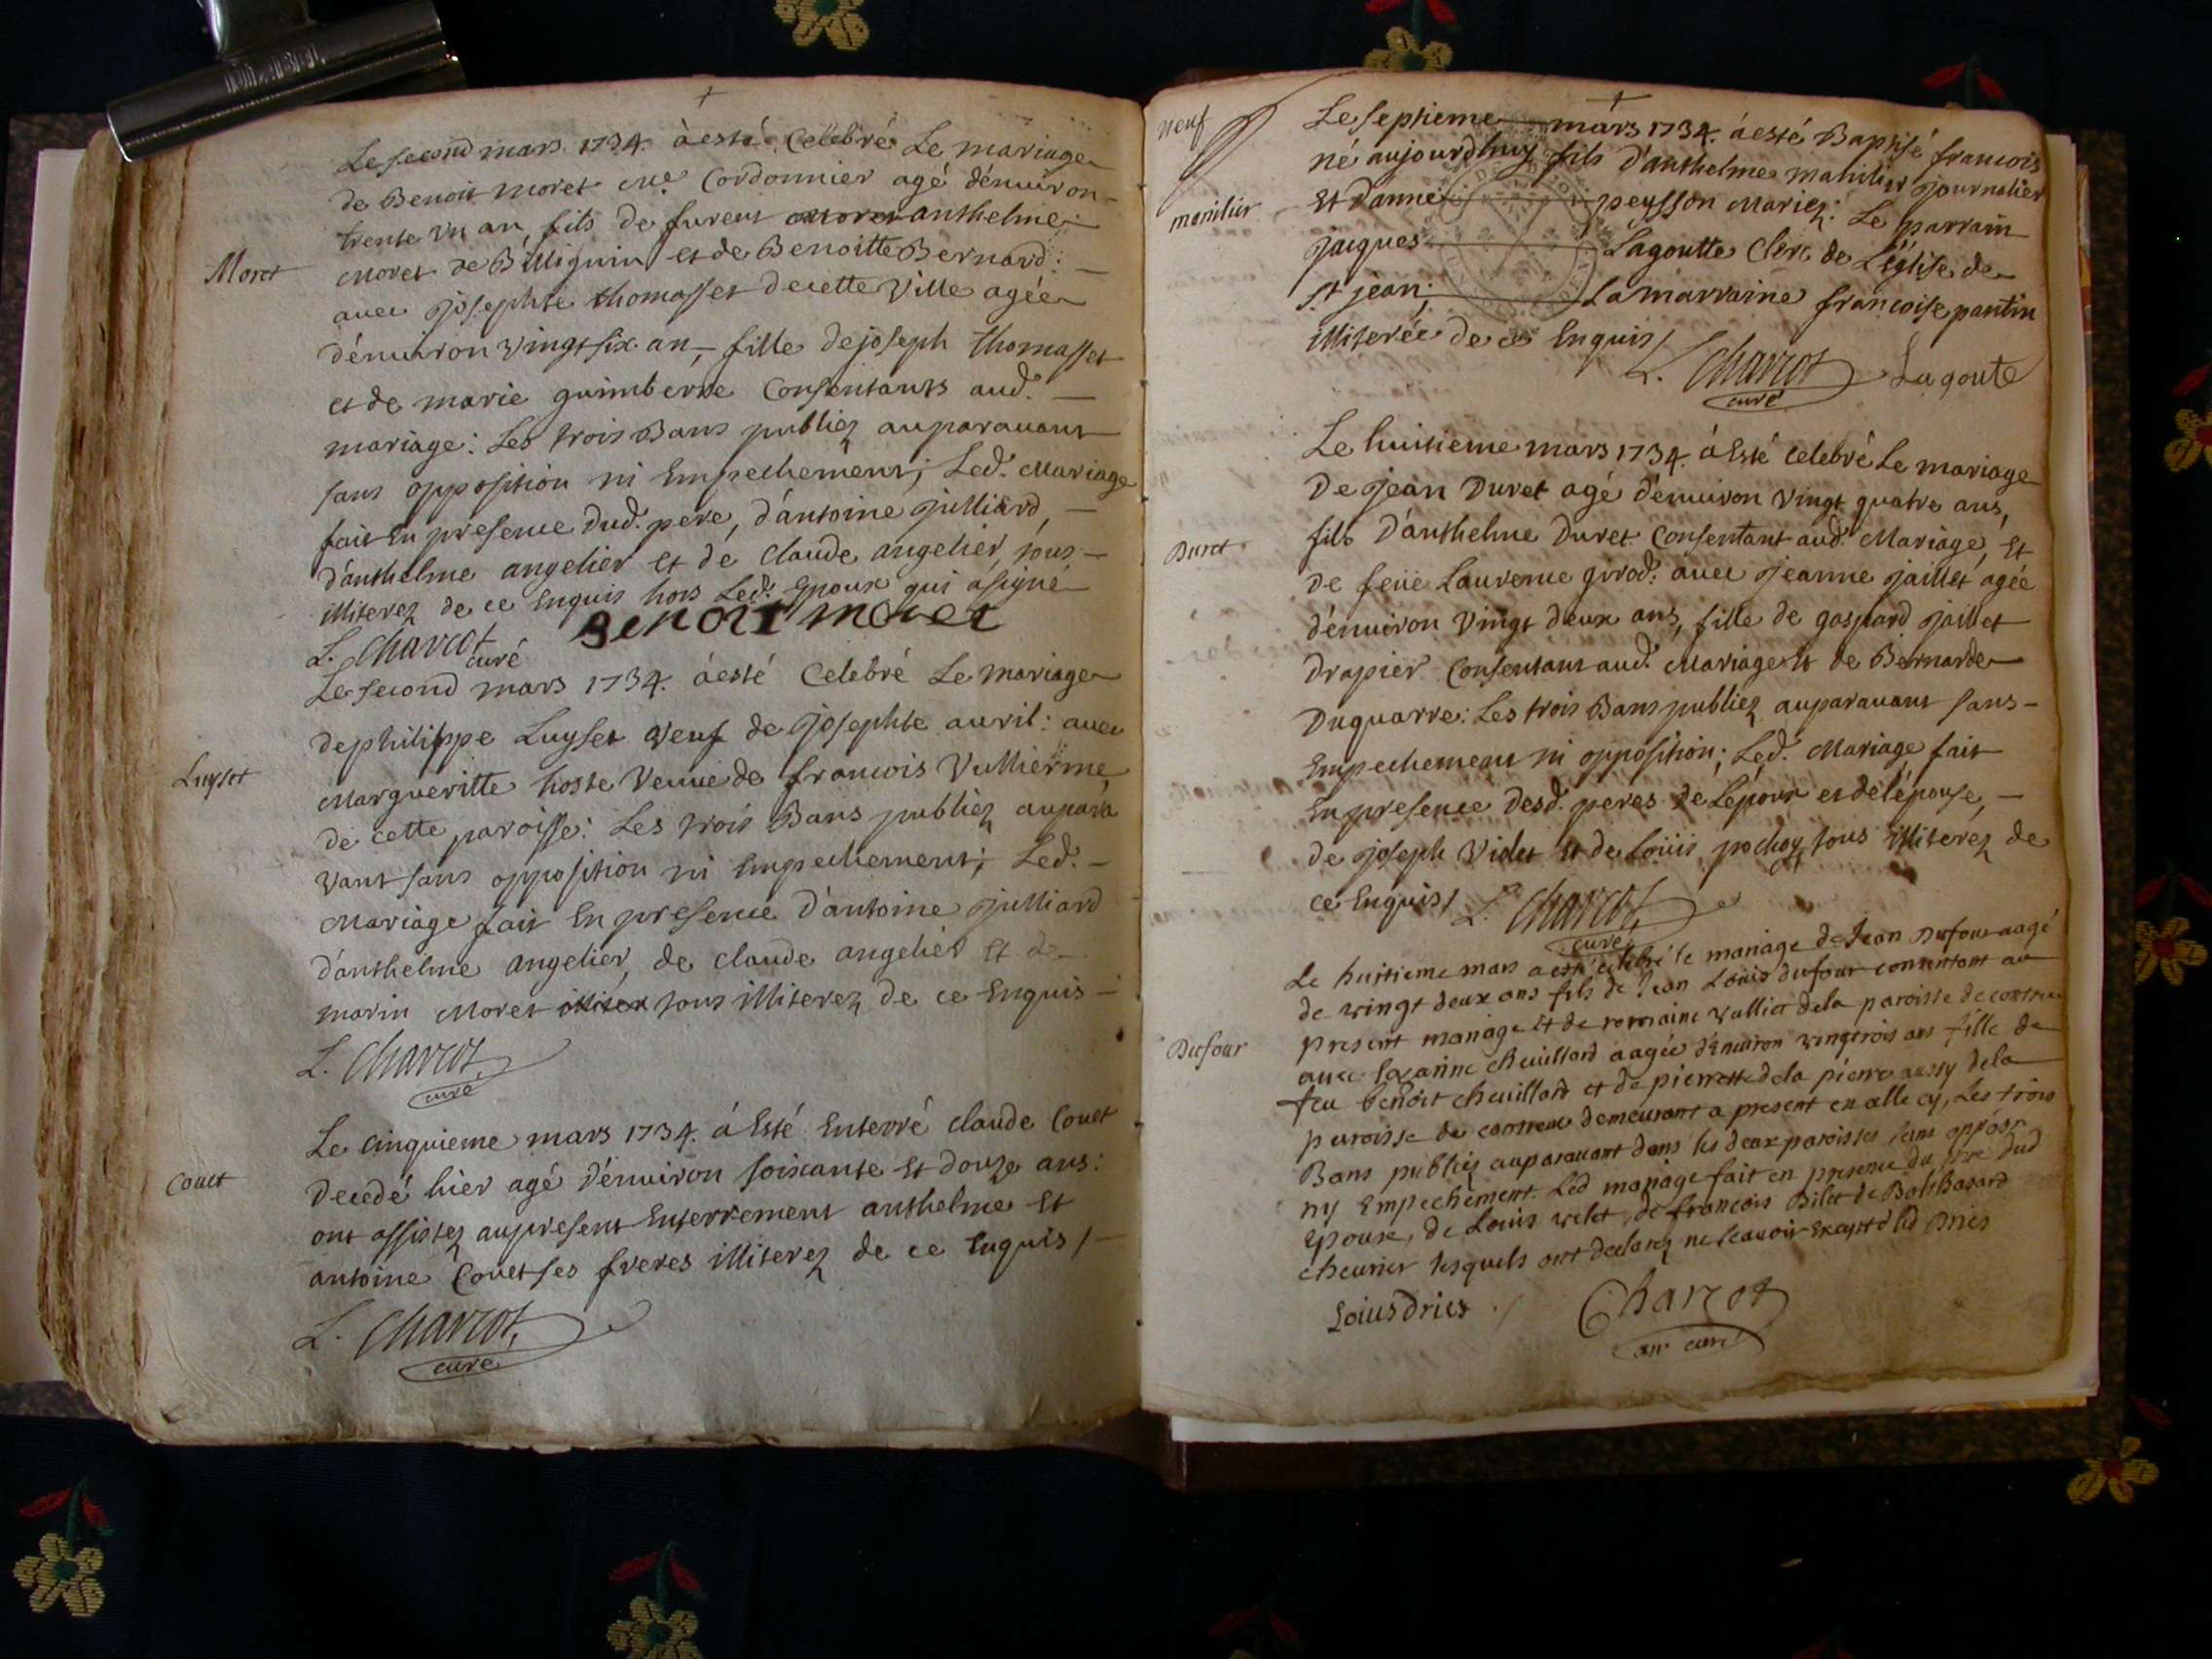 Le second mars 1734. à esté Celebré Le mariage
de Benoit moret me. Cordonnier agé dénuiron
trente un an, fils de fureut anthelme
Moret
Moret de Billignin et de Benoitte Bernard: —
auec josephte thomasset de cette Ville agée
dénuiron vingt six an, fille de joseph thomasset
et de marie guimberte Consentants aud. —
mariage: Les trois Bans publiez auparauant
sans opposition ni Empechement; Led. Mariage
fait En presence dud. pere, d'antoine julliard, —
d'anthelme angelier et de Claude angelier, tous —
illiterez de ce Enquis hors Led. Epoux qui a signé
L. Charcot curé
Benoit moret
Le second mars 1734. à esté Celebré Le mariage
de philippe Luyset veuf de josephte auril: auec
Luyset
Margueritte hoste Veuue de francois Vullierme
de cette paroisse: Les trois Bans publiez aupara
vant sans opposition ni Empechement; Led. —
Mariage fait En presence d'antoine julliard
d'anthelme angelier, de claude angelier et de
marin Moret tous illiterez de ce Enquis —
L. Charcot
curé
Le cinquieme mars 1734. à Esté Enterré claude Couet
Couet
decedé hier agé d'énuiron soixante et douze ans:
ont assistez au present Enterrement anthelme et
antoine Couet ses freres illiterez de ce Enquis / —
L. Charcot,
curé
neuf
Le septieme — mars 1734. à esté Baptisé francois
né aujourdhuy fils d'anthelme manilier journalier
manilier
Et d'anne — peysson Mariez: Le parrain
jacques — Lagoutte Clerc de L'église de
st jean; — La marraine francoise pantin
illiterée de ce Enquis /
L. Charcot
curé
Lagoute
Le huitieme mars 1734. à Esté celebré Le mariage
De jean Duret agé d'énuiron vingt quatre ans,
fils d'anthelme Duret Consentant aud. Mariage, et
Duret
de feüe Laurence girod: auec jeanne jaillet agée
d'énuiron vingt deux ans, fille de gaspard jaillet
drapier Consentant aud. Mariage et de Bernarde
Duquarre: Les trois Bans publiez auparauant sans —
Empechement ni opposition; Led. Mariage fait
En presence desd. peres de L'époux et de L'épouse, —
de joseph Violet et de Loüis pochoy tous illiterez de
ce Enquis /
L. Charcot,
curé
Le huitieme mars a esté celebré le mariage de Jean Dufour aagé
de vingt deux ans fils de Jean Louis dufour consentant au
present mariage et de romaine Vulliet de la paroisse de
Dufour
auec cheuillard aagée d'énuiron vingtrois ans fille de
feu benoit cheuillard et de pierrette de la pierre aussy de la
paroisse de demeurant a present en cy, Les trois
Bans publiez auparauant dans les deux paroisses sans opposon
ny Empechement. Led mariage fait en presence du pere dud
Epoux, de Louis de francois Bilet de
cheurier lesquels ont declarez ne scauoir Excepté led Dries
Loius dries
Charcot
curé